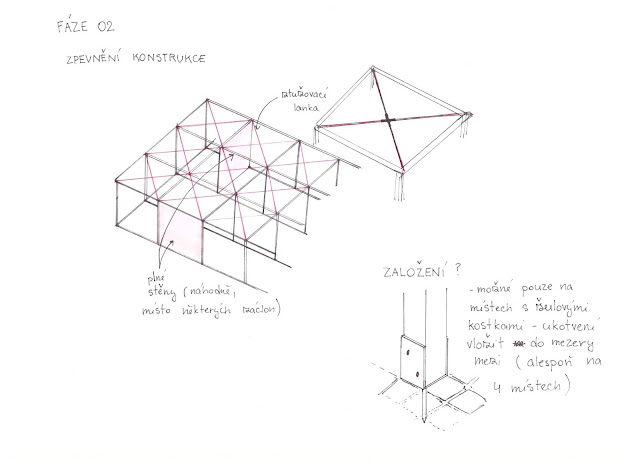 FÁZE 02
ZPEVNĚNÍ KONSTRUKCE
ztužovací
lanka
plné
stěny (náhodně,
místo některých záclon)
ZALOŽENÍ ?
- možné pouze na
místech s žulovými
kostkami - ukotvení
vložit do mezery
mezi (alespoň na
4 místech)